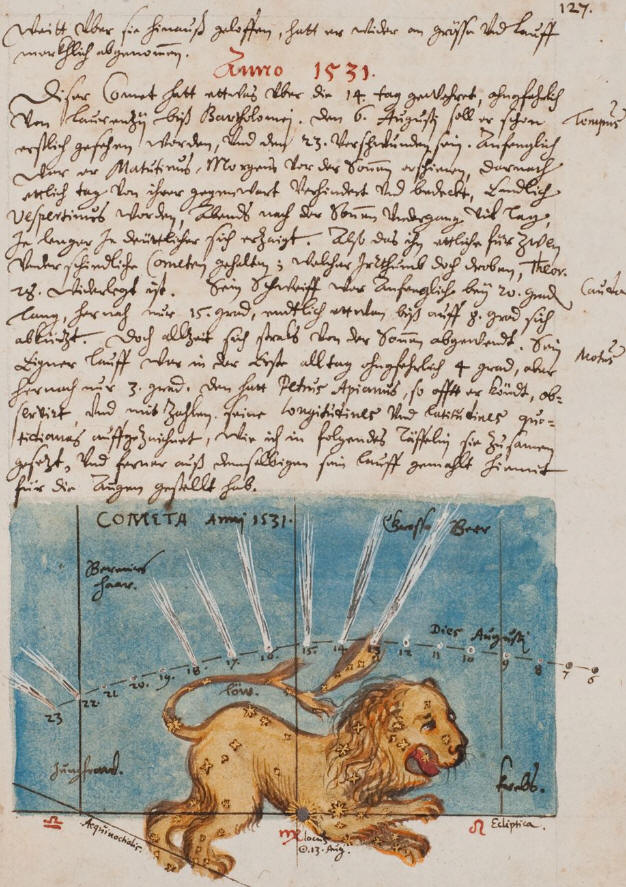 127.
weitt über sie hinauß geloffen, hatt er wider an grösse Vnd lauff
mercklich abgenommen.
Anno 1531.
Diser Comet hatt ettwas über die 14. tag gewehret, ohngefehrlich
von Laurenzij biß Bartholomej. Den 6. Augustj soll er schon
erstlich gesehen worden, Vnd den 23. Verschwunden sein. Anfenglich
war er Matutinus, Morgens vor der Sonnen erschinen, darnach
ettlich tag von ihrer gegenwert Verhindert Vnd bedeckt, Endlich
Vespertinus worden, Abends nach der Sonnen Vndergang.
Je lenger Je deüttlicher sich erzeigt. Alß das ihn ettliche für Zwen
Vnderschiedliche Cometen gehalten: welcher Irthumb doch droben, Theor.
28. widerlegt ist. Sein Schweiff war Anfenglich bey 20. grad
lang, hernach nur 15. grad, endtlich biß auff 8. grad sich
abkürtzt. Doch allzeit sich von der Sonnen abgewendt. Sein
Eigner lauff war in der Erste alltag ohngefehrlich 4 grad, aber
hernach nur 3. grad. Den hatt Petrus Apianus, so offt er köndt, ob-
servirt, Vnd mit Zahlen seine Longitudines Vnd latitudines quo-
tidianas auffgezeichnet, wie ich in folgendes Täffelin sie zusamen
gesezt, Vnd ferner auß demselbigen sein lauff gemahlt hiemit
für die Augen gestellt hab.
Tempus
Cauda
Motus
COMETA Annj 1531.
Grosse Beer
Berenices
haar.
Dies Augustj
23 22 21 20. 19. 18 17. 16. 15. 14. 13 12 11 10 9 8 7 6
löw.
Junckfraw.
Krebs.
♎
Aequinoctialis.
♍ locus
☉. 13. Aug.
♌ Ecliptica.